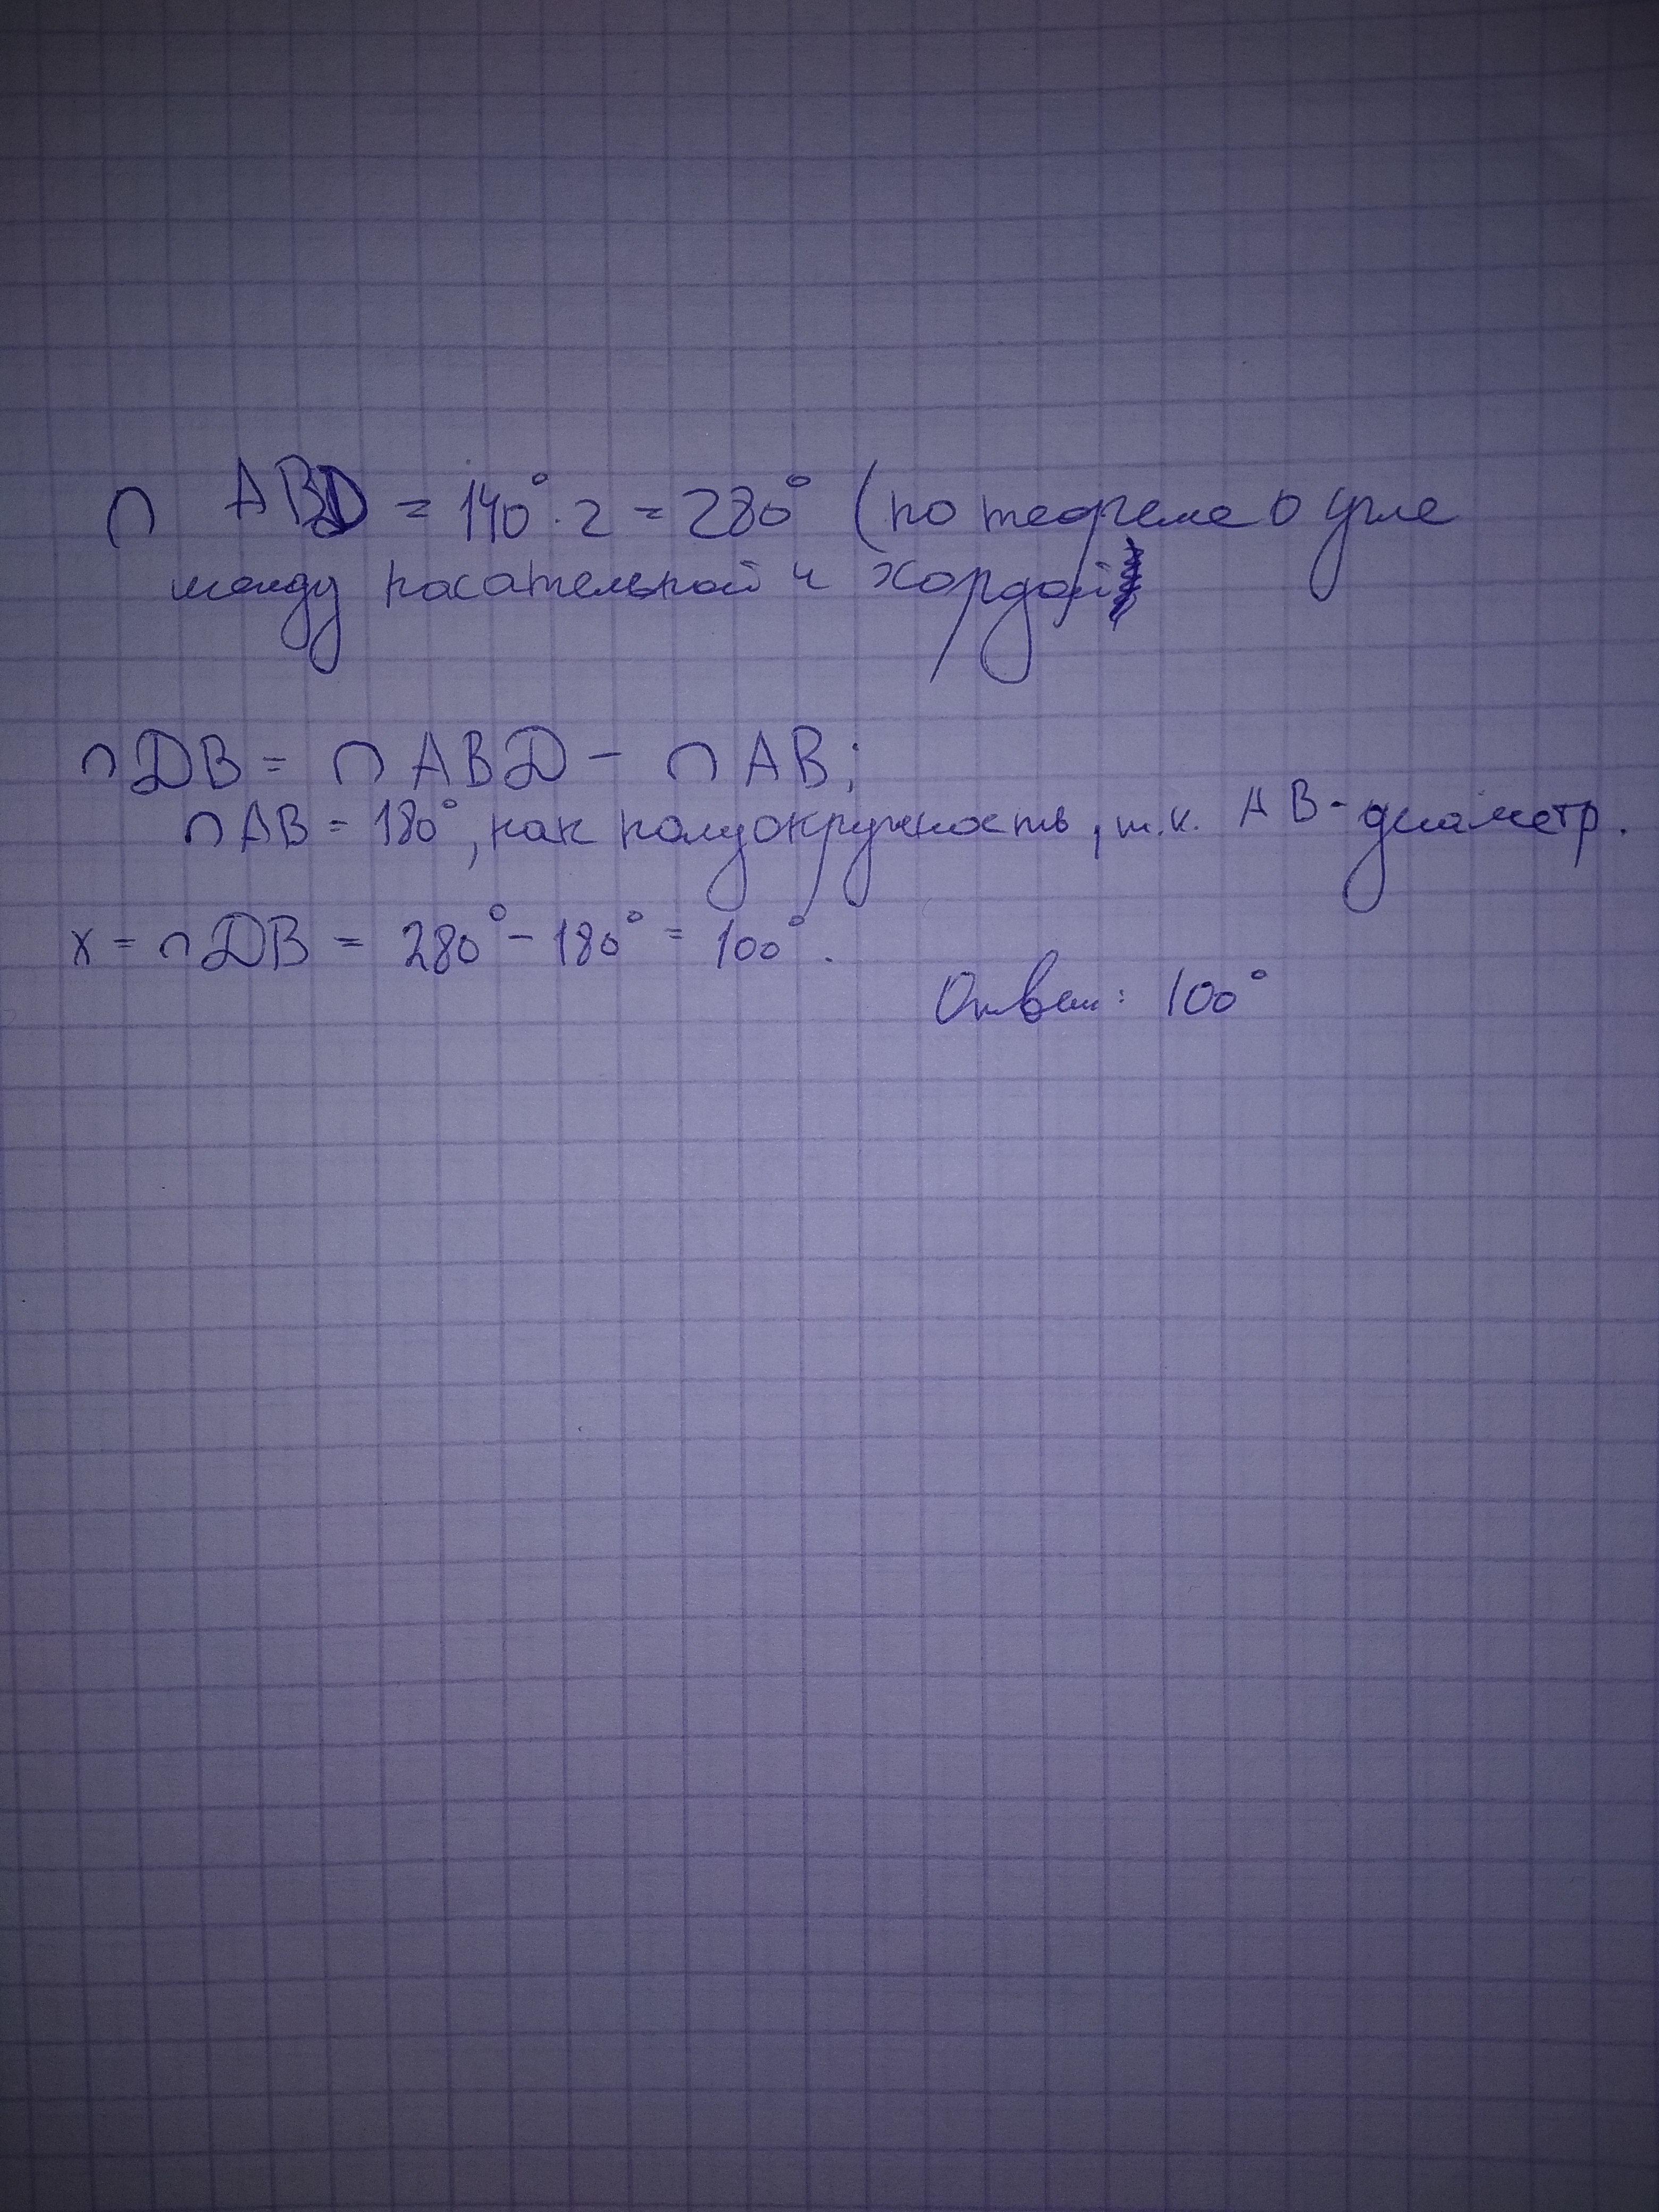 ∩ ABD = 140° · 2 = 280° (по теореме о угле
между касательной и хордой
∩ DB = ∩ ABD - ∩ AB;
∩ AB = 180°, как полуокружность, т.к. AB - диаметр.
x = ∩ DB = 280° - 180° = 100°.
Ответ: 100°